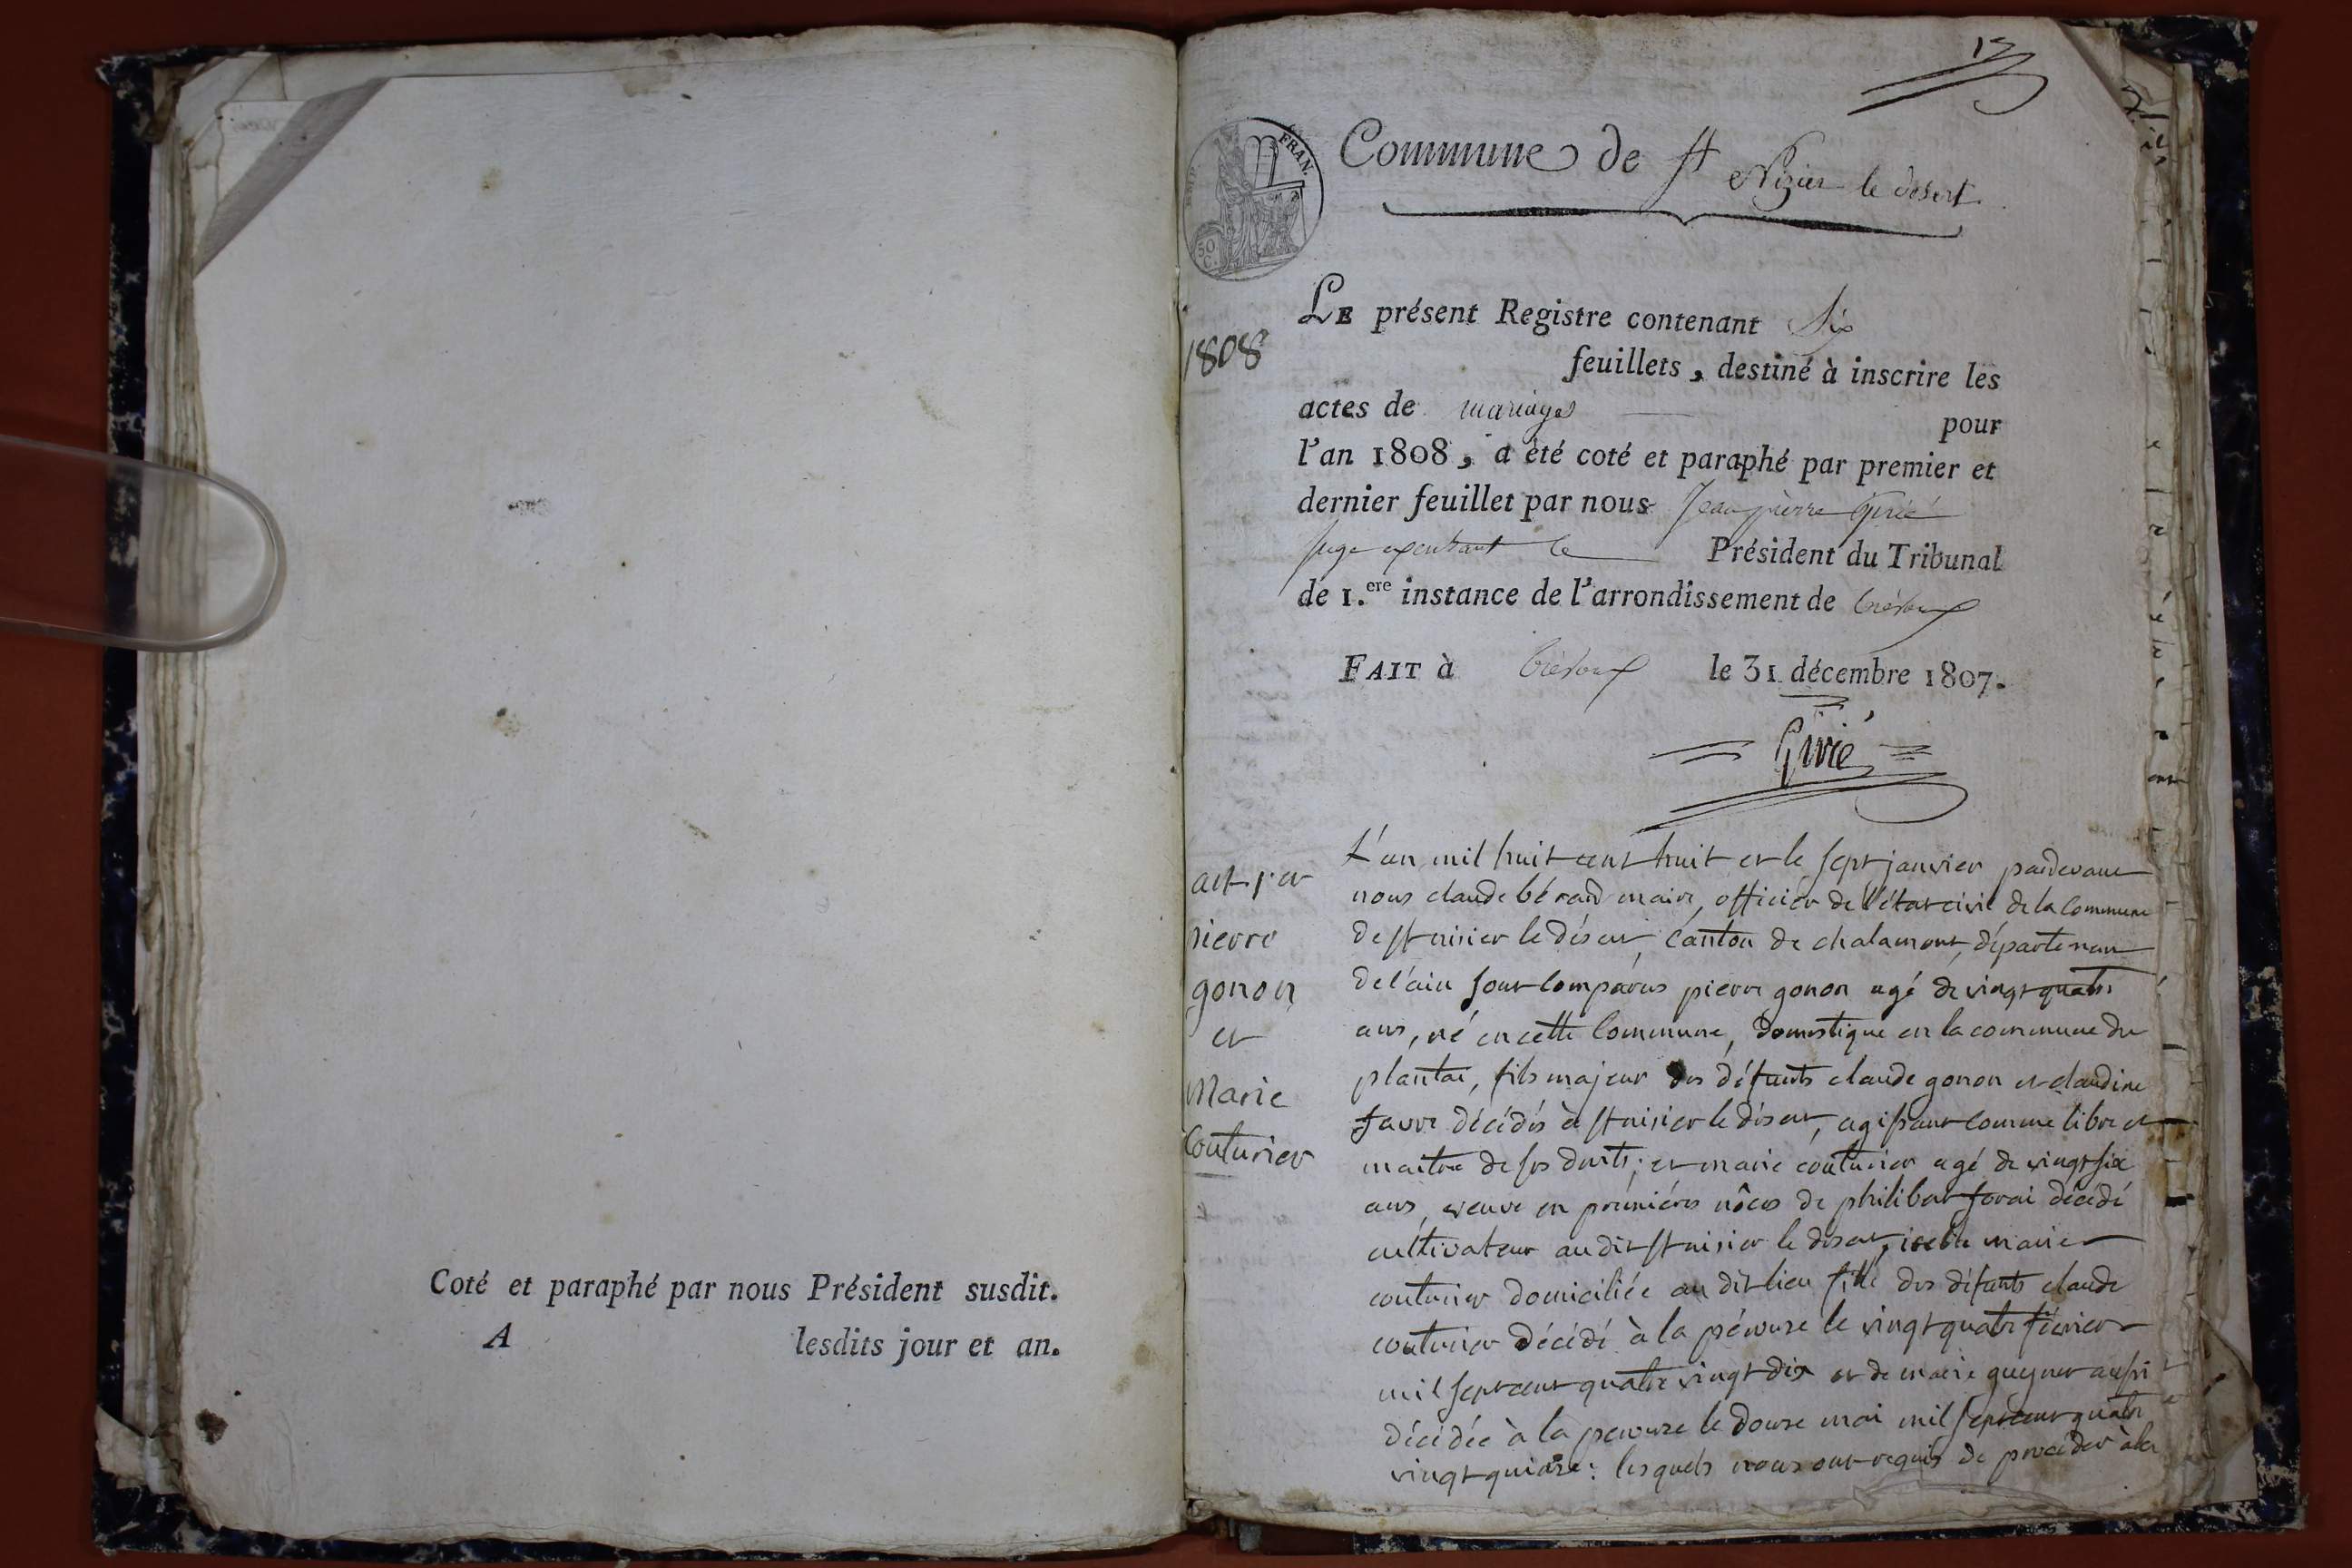 Coté et paraphé par nous Président susdit.
A lesdits jour et an.
FRAN.
50
C.
Commune de St Nizier le désert
1808
LE présent Registre contenant Six
feuillets, destiné à inscrire les
actes de mariage pour
l'an 1808, a été coté et paraphé par premier et
dernier feuillet par nous Jean pierre Girié
Juge exerçant le Président du Tribunal
de 1.ere instance de l'arrondissement de trévoux
FAIT à trévoux le 31 décembre 1807.
Girié
act 1er
pierre
gonon
et
Marie
Couturier
L'an mil huit cent huit et le sept janvier pardevant
nous claude bérard maire, officier de l'état civil de la Commune
de st nisier le désert, canton de chalamont, département
de l'ain sont comparus pierre gonon agé de vingt quatre
ans, né en cette Commune, domestique en la commune du
plantai, fils majeur des défunts claude gonon et claudine
favre décédés à st nisier le désert, agissant comme libre et
maitre de ses droits; et marie couturier agé de vingt six
ans, veuve en prémiéres nôces de philibert forai décédé
cultivateur au dit st nisier le désert, icelle marie
couturier domiciliée au dit lieu fille des défunts claude
couturier décédé à la pérouse le vingt quatre février
mil sept cent quatre vingt dix et de marie gueynet aussi
décédée à la perouse le douze mai mil sept cent quatre
vingt quinze: lesquels nous ont requis de proceder à la